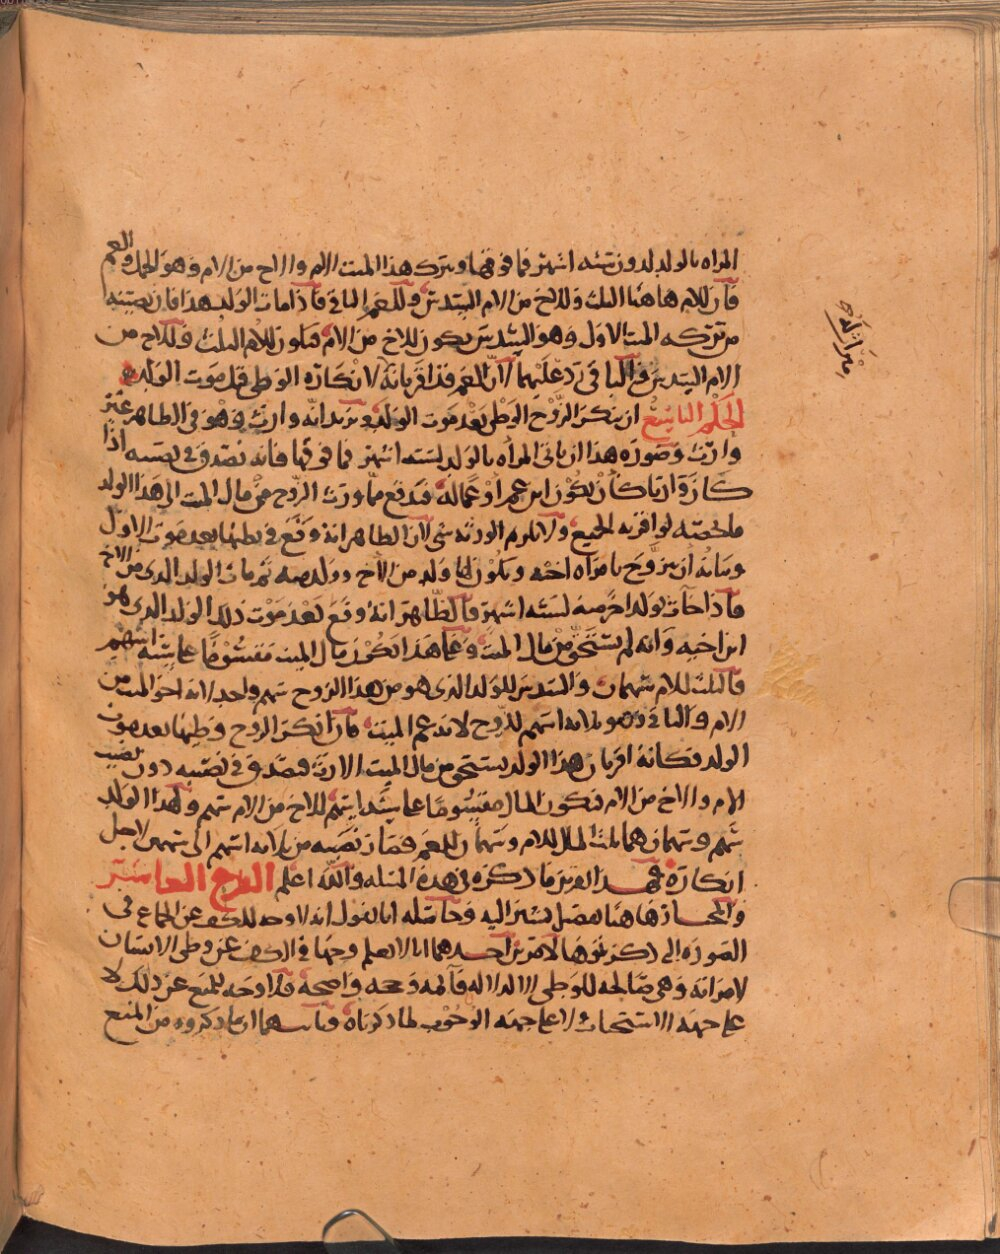 المراه بالولد لدون ستة اشهر فما فوقها ويترك هذا الميت الام والاخ من الام وهو الحمل والعم
فان للام هاهنا الثلث وللاخ من الام السدس وللعم الباقي فاذا مات الولد هذا فان نصيبه
من تركه الميت الاول وهو السدس يكون للاخ من الام فيكون للام الثلث وللاخ من
الام السدس والباقي رد عليهما لان العم قد اقر بانه لانكاره الوطي قبل موت الولد
الحكم التاسع ان ينكر الزوج الوطي بعد موت الولد ويريد انه وارث وهو في الظاهر غير
وارث وصورة هذا ان ياتي المراه بالولد لسته اشهر فما فوقها فانه يصدق في نصيبه اذا
كان وارثا كان يكون ابن عم او عما له فيدفع مما ورث الزوج من مال الميت الى هذا الولد
ما يخصه لو اقر به الجميع ولا يلزم الورثه شي لان الظاهر انه وقع في بطنها بعد موت الاول
وبيانه ان يتزوج بامراه اخيه ويكون لها ولد من الاخ وولد منه ثم مات الولد الذي من الاخ
فاذا جات بولد اخر منه لسته اشهر فالظاهر انه وقع بعد موت ذلك الولد الذي هو
ابن اخيه وانه لم يستحق من مال الميت وعلى هذا يكون مال الميت مقسوما على سته اسهم
فالثلث للام سهمان والسدس للولد الذي هو من هذا الزوج سهم واحد لانه اخو الميت من
الام والباقي وهو ثلاثه اسهم للزوج لانه عم الميت فان انكر الزوج وطيها بعد موت
الولد فكانه اقر بان هذا الولد يستحق من مال الميت الارث فيصدق في نصيبه دون نصيب
الام والاخ من الام فيكون المال مقسوما على سته اسهم للاخ من الام سهم ولهذا الولد
سهم وسهمان هما ثلث المال للام وسهمان للعم فصار نصيبه من ثلاثه اسهم الى سهمين لاجل
انكاره فهذا تقرير ما ذكره في هذه المسله والله اعلم الفرع العاشر
والمختار هاهنا تفصيل نشير اليه وحاصله انا نقول انه لا وجه للكف عن الجماع في
الصوره التي ذكرتموها لامرين احدهما انا لا نعلم وجها في الكف عن وطي الانسان
لامراته وهي صالحه للوطي الا لدلاله قائمه وحجه واضحه فلا وجه للمنع عن ذلك لا
على جهه الاستحباب ولا على جهه الوجوب لما ذكرناه وثانيهما ان ما ذكروه من المنع